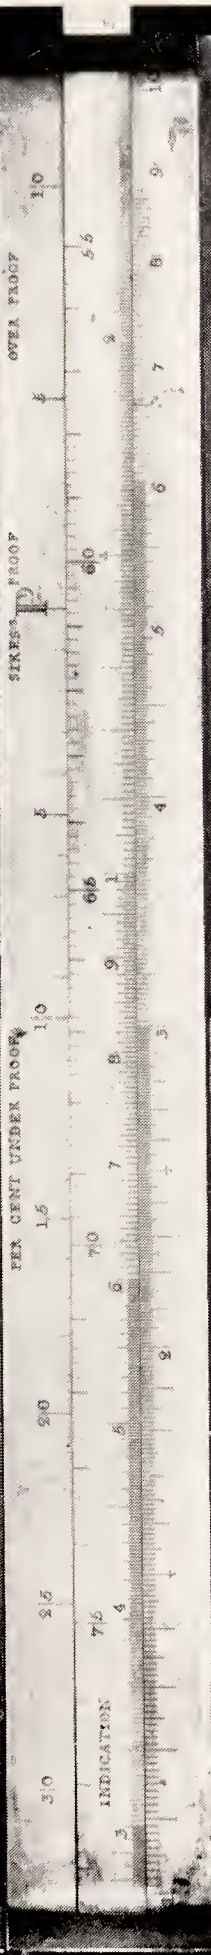 OVER PROOF
SIKES'S PROOF
PER CENT UNDER PROOF
10
5
P
5
10
15
20
25
30
55
60
65
70
75
INDICATION
2
1
9
8
7
6
5
4
3
10
9
8
7
6
5
4
3
2
1